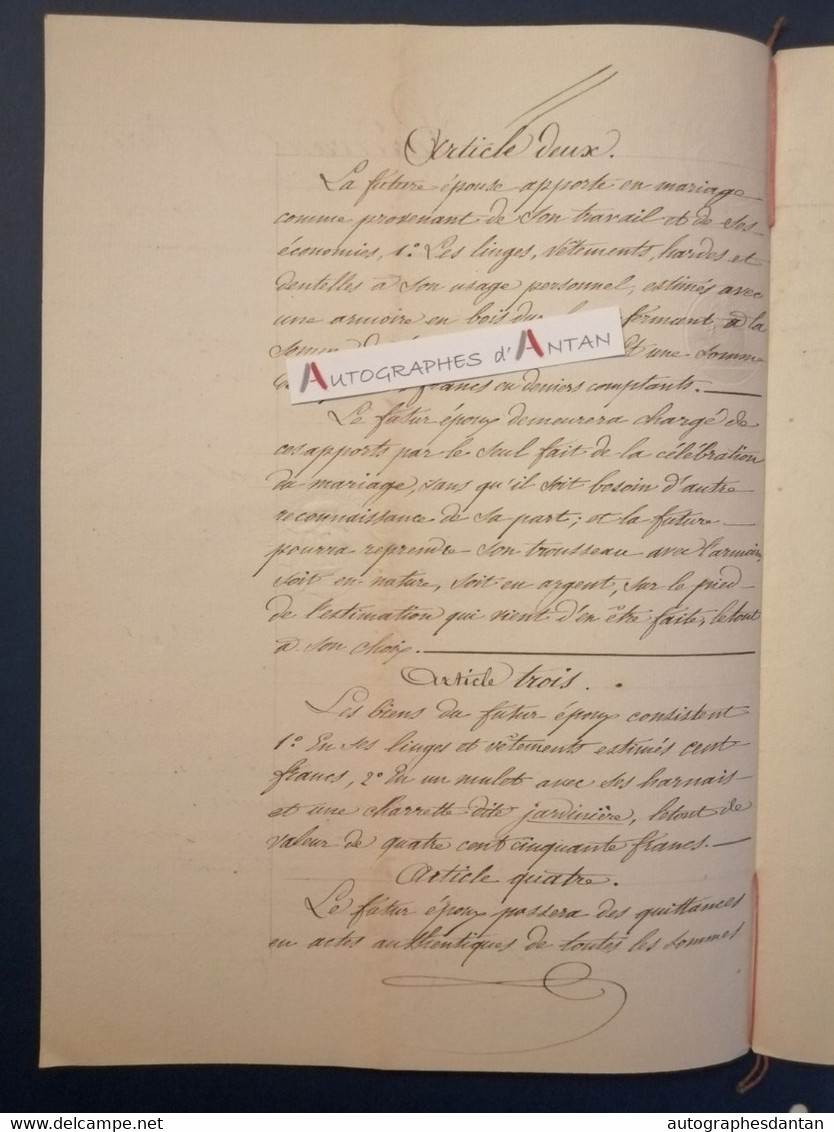 Article deux.
La future épouse apporte en mariage
comme provenant de son travail et de ses
économies, 1° Les linges, vêtements, hardes et
dentelles à son usage personnel, estimés avec
une armoire en bois du fermant, à la
somme et une somme
AUTOGRAPHES d'ANTAN
francs en deniers comptants.
Le futur époux demeurera chargé de
ces apports par le seul fait de la célébration
du mariage, sans qu'il soit besoin d'autre
reconnaissance de sa part; et la future
pourra reprendre son trousseau avec l'armoire,
soit en nature, soit en argent, sur le pied
de l'estimation qui vient d'en être faite, le tout
à son choix.
Article trois.
Les biens du futur époux consistent
1° En ses linges et vêtements estimés cent
francs, 2° En un mulet avec ses harnais
et une charrette dite jardinière, le tout de
valeur de quatre cent cinquante francs.
Article quatre.
Le futur époux passera des quittances
en actes authentiques de toutes les sommes
delcampe.net
autographesdantan